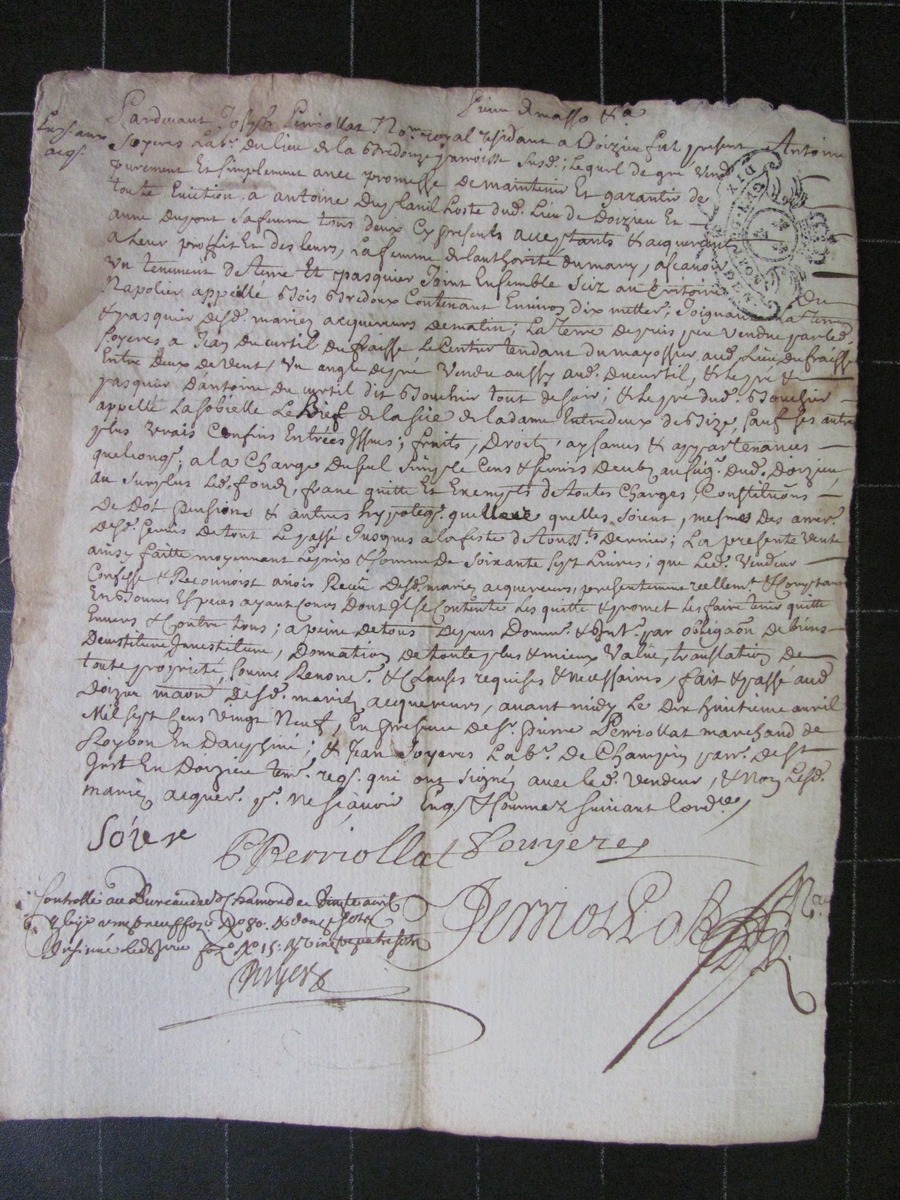 Pardevant Joseph Perriollat Nore royal residant a Doizieu fut present Antoine
Soyeres Labr. du lieu de la Bredouze parroisse susd.; Lequel de gré vend
purement Et simplement avec promesse de maintenir Et garantir de
toute Eviction, a antoine Dupland hoste dud. Lieu de Doizieu Et
anne Dupont sa femme tous deux Cy presents acceptants & acquerant
a Leur proffit Et des leurs, La femme de lauthorité du mary, ascavoir
Un tenement de terre Et pasquier Joint Ensemble Sciz au territoire Du
Napolier appellé Bois Bredoux Contenant Environ dix metter; Joignant la terre
& pasquier desd. mariez acquereurs de matin; La terre depuis peu vendue par led.
Soyeres a Jean Ducurtil du fraisse Le Sentier tendant du mayossier aud. Lieu du fraisse
Entre Deux de Vent, Un angle de pré Vendu aussy aud. Ducurtil, & le pré &
pasquier D'antoine du curtil dit Bouchir tout de soir; & le pré dud. Bouchir
appellé La sobielle Le Bief de la scie de la dame Entredeux de Bize, sauf ses autres
plus Vrais Confins Entrées Issues; fruits, Droits, aysances & appartenances
quelconqs; a la Charge du seul simple Cens & servis deubz au seigr. dud. Doizieu,
au surplus Led. fondz franc quitte Et Exempts de toutes Charges Constitutions
De Dot pensions & autres hypoteqs. quelleue quelles soient, mesmes des arrer.
desd. servis de tout Le passé Jusques a la feste d'Aoust Dernier; La presente Vente
ainsy faitte moyennant Le prix & somme de Soixante sept Livres; que Led. Vendeur
Confesse & Reconnoist avoir Receu desd. mariez acquereurs, presentement reellemt. & Comptant
En Bonnes Especes ayant Cours Dont Il se Contente Les quitte & promet Les faire tenir quitte
Envers & Contre tous; a peine de tous Depens Domm. & Int. par obligaon. de biens
Devestiture Investiture, Donnation de toute plus & mieux Value, translation de
toute proprieté, soums. Renonc. & Clauses requises & necessaires, fait & passé aud.
Doizieu maon. desd. mariez acquereurs, avant midy Le Dix huitieme avril
Mil sept Cens Vingt Neuf, En presence de sr. pierre Perriollat marchand de
Roybon En Dauphiné; & Jean Soyeres Labr. de parr. de st
Just En Doizieu tem. reqs. qui ont signez avec led. Vendeur, & Non Lesd.
mariez acquer. pr. ne sçavoir Enqs. & sommez suivant Lord.e
Soiere
P Perriollat Souyeres
Perriollat Nre
Controllé au Bureau de St Chamond ce Vingt avril
Ruyer